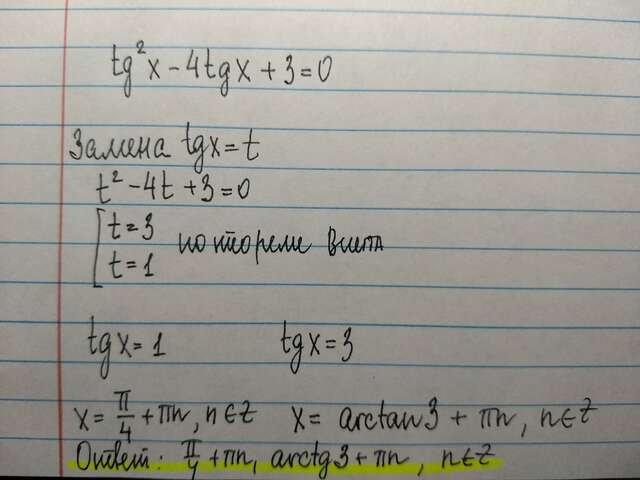 tg²x - 4tgx + 3 = 0
Замена tgx = t
t² - 4t + 3 = 0
t = 3
t = 1
по теореме Виета
tgx = 1 tgx = 3
x = π/4 + πn, n ∈ Z x = arctan3 + πn, n ∈ Z
Ответ: π/4 + πn, arctg3 + πn, n ∈ Z